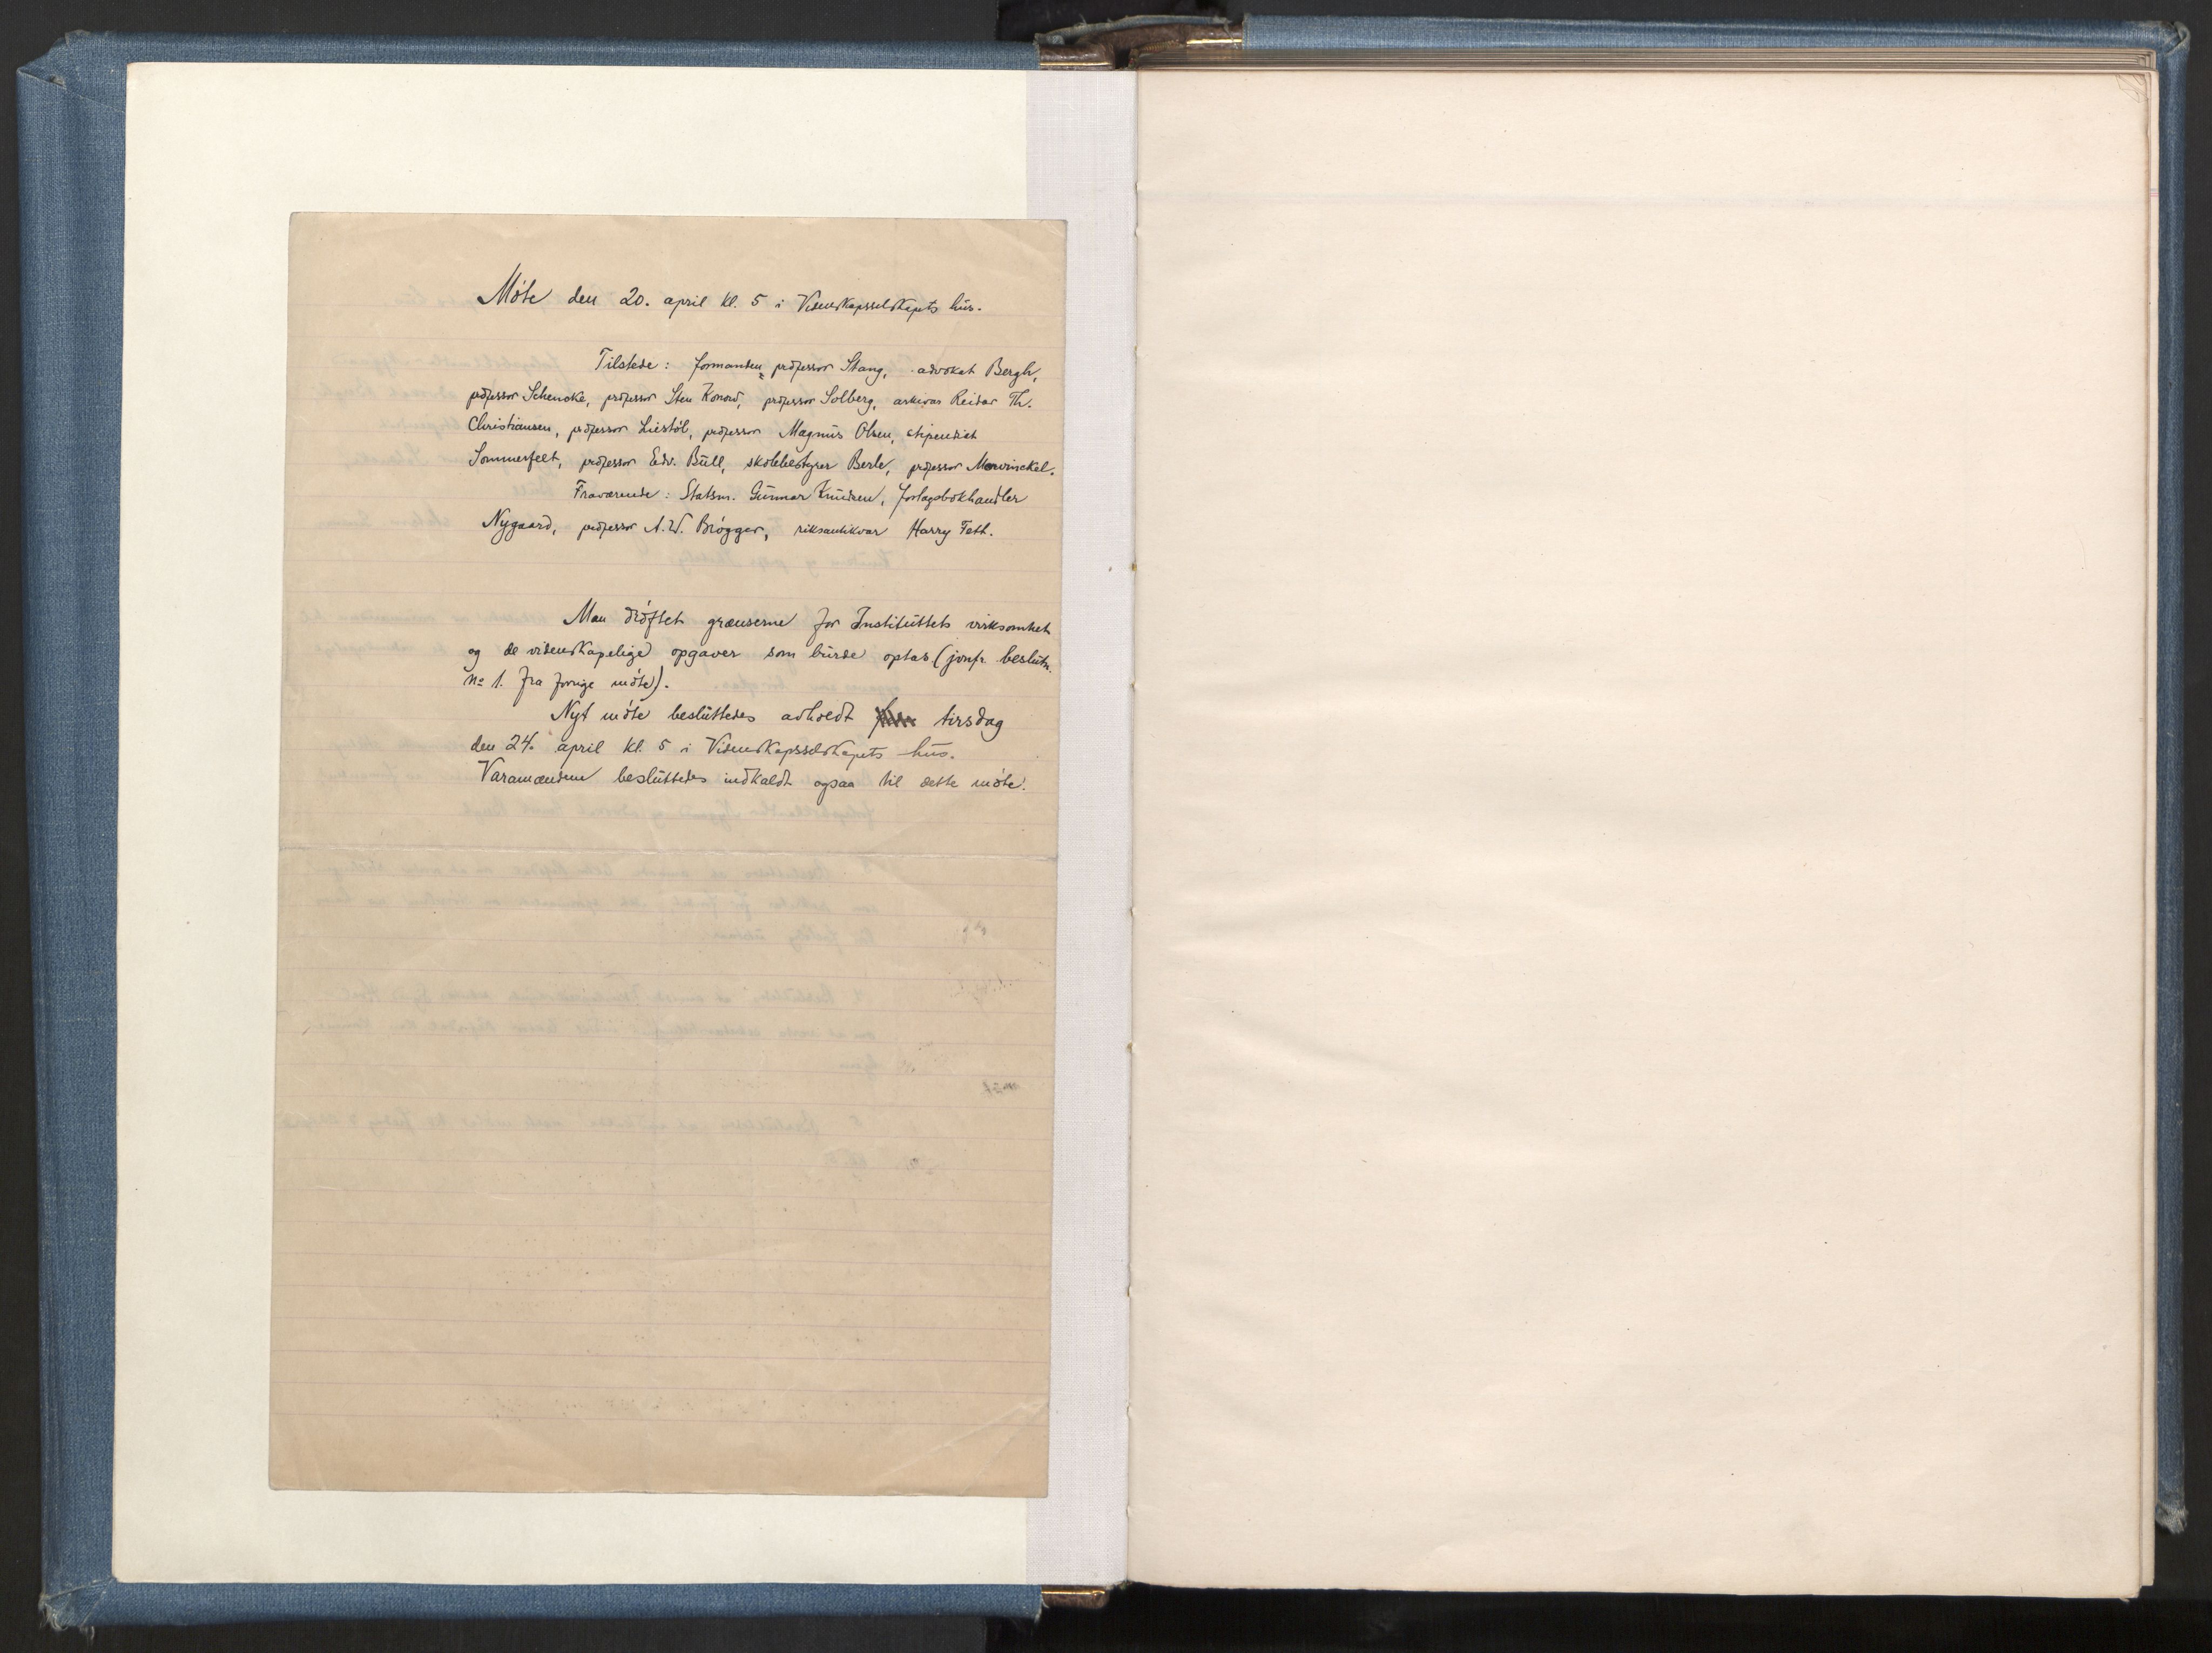 Möte den 20. april kl. 5 i Videnskapsselskapets hus.
Tilstede: formanden, professor Stang, advokat Bergh,
professor Schencke, professor Sten Konow, professor Solberg, arkivar Reidar Th.
Christiansen, professor Liestöl, professor Magnus Olsen, stipendiat
Sommerfelt, professor Edv. Bull, skolebestyrer Berle, professor Morvinckel.
Fraværende: Statsm. Gunnar Knudsen, forlagsbokhandler
Nygaard, professor A. W. Brøgger, riksantikvar Harry Fett.
Man drøftet grænserne for Instituttets virksomhet
og de videnskapelige opgaver som burde optas (jvnfr. beslutn.
No 1. fra forrige möte).
Nyt möte besluttedes avholdt tirsdag
den 24. april kl. 5 i Videnskapsselskapets hus.
Varamændene besluttedes indkaldt ogsaa til dette möte.